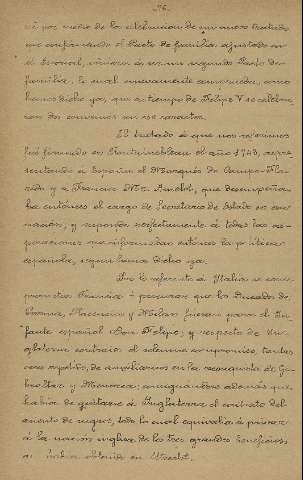 76.
có por medio de la celebracion de un nuevo tratado
que confirmando el Pacto de familia ajustado en
el Escorial, viniera á ser un segundo Pacto de
familia, lo cual nuevamente como
hemos dicho ya, que en tiempo de Felipe V se celebra-
ron dos convenios en ese caracter.
El tratado á que nos referimos
fué firmado en Fontainebleau el año 1743, repre-
sentando á España el Marqués de Campo-Flo-
rido y á Francia Mr. Amelot, que desempeña-
ba entónces el cargo de Secretario de Estado en esa
nacion; y responde perfectamente á todas las as-
piraciones que informaban entonces la política
española, segun hemos dicho ya.
Por lo referente á Italia se com-
prometia Francia á procurar que los Ducados de
Parma, Placencia y Milan fuesen para el In-
fante español Don Felipe; y respecto de In-
glaterra contraia el solemne compromiso tantas
veces repetido, de auxiliarnos en la reconquista de Gi-
braltar y Menorca; consignandose además que
habia de quitarse á Inglaterra el contrato del
asiento de negros, todo lo cual equivalia á privar
á la nacion inglesa de los tres grandes beneficios
obtenido en Utrecht.